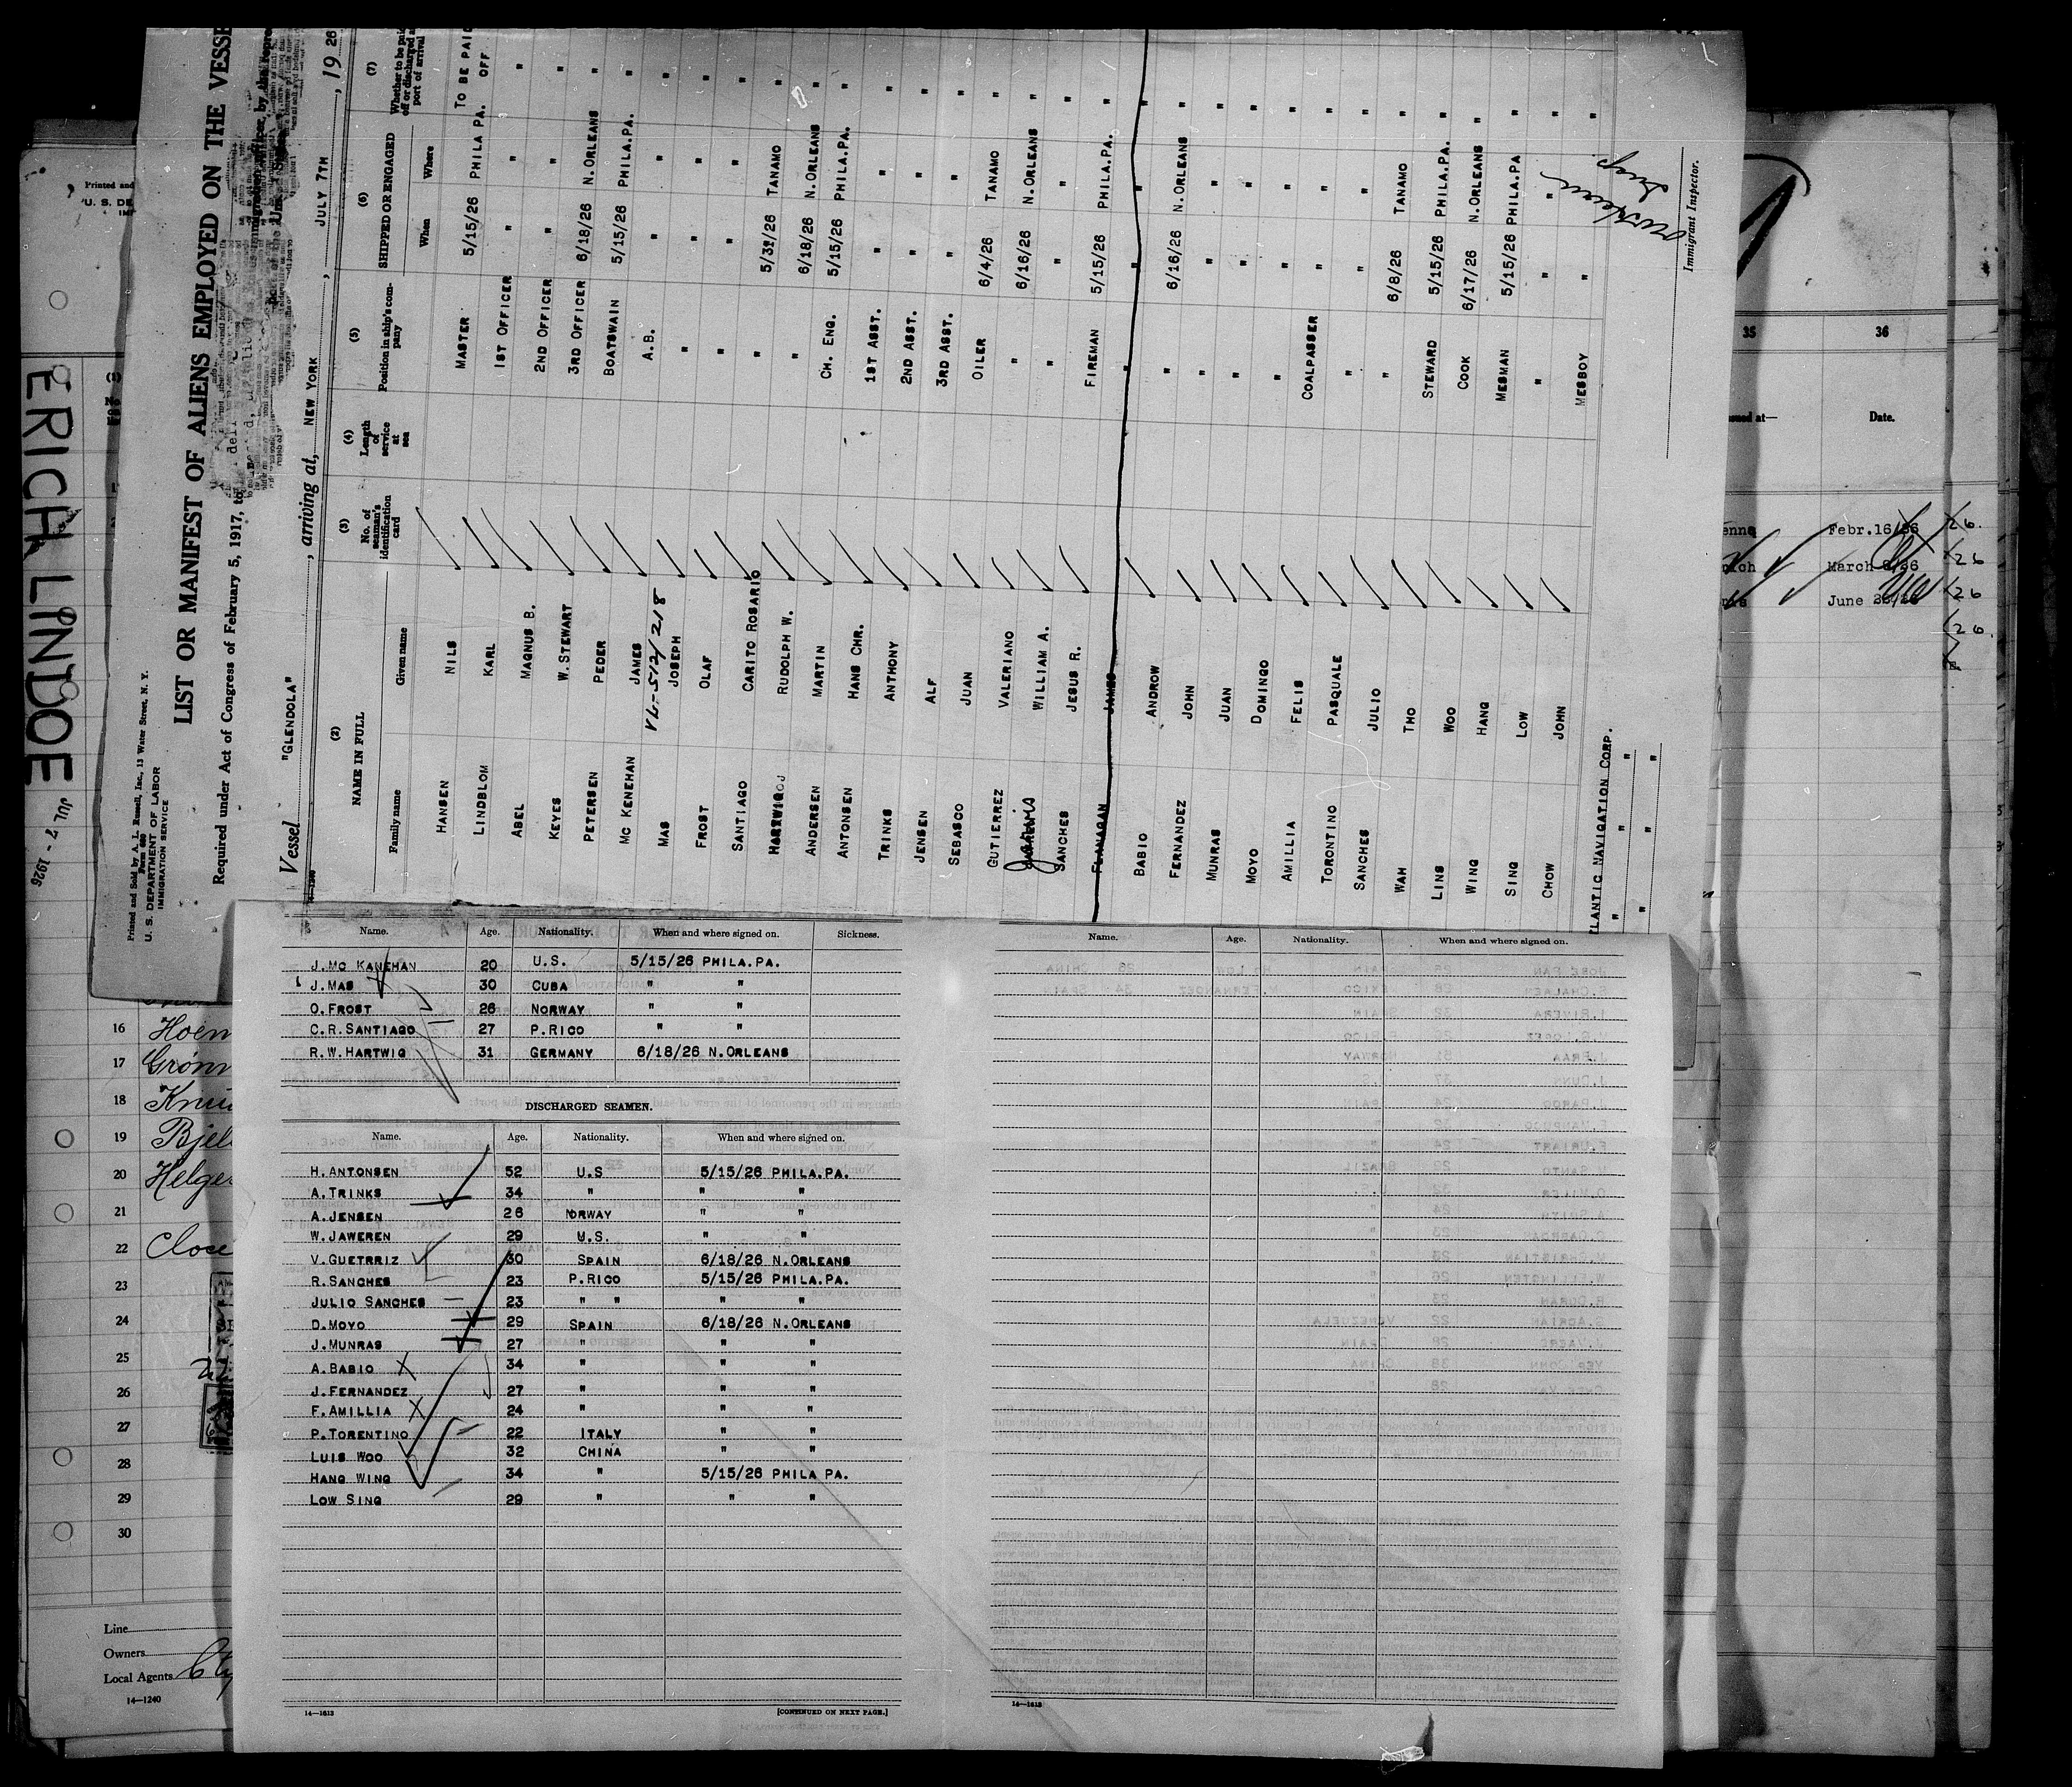 ERICH LINDOE
JUL 7 - 1926
Printed and Sold by A. L. Russell, Inc., 13 Water Street, N. Y.
Form 680
U. S. DEPARTMENT OF LABOR
IMMIGRATION SERVICE
LIST OR MANIFEST OF ALIENS EMPLOYED ON THE VESSE
Required under Act of Congress of February 5, 1917, to
Vessel "GLENDOLA", arriving at, NEW YORK, JULY 7TH, 1926
(2) (3) (4) (5) (6) (7)
NAME IN FULL
Family name Given name
No. of seaman's identification card
Length of service at sea
Position in ship's company
SHIPPED OR ENGAGED
When Where
Whether to be paid off or discharged at port of arrival
HANSEN NILS MASTER 5/15/26 PHILA PA. TO BE PAID OFF
LINDBLOM KARL 1ST OFFICER " " "
ABEL MAGNUS B. 2ND OFFICER " " "
KEYES W. STEWART 3RD OFFICER 6/18/26 N. ORLEANS "
PETERSEN PEDER BOATSWAIN 5/15/26 PHILA. PA. "
MC KENEHAN JAMES A.B. " " "
VL-512/218
MAS JOSEPH " " " "
FROST OLAF " " " "
SANTIAGO CARITO ROSARIO " "
HARTWIG RUDOLPH W. " 6/18/26 N. ORLEANS "
ANDERSEN MARTIN CH. ENG. 5/15/26 PHILA. PA. "
ANTONSEN HANS CHR. 1ST ASST. " " "
TRINKS ANTHONY 2ND ASST. " " "
JENSEN ALF 3RD ASST. " " "
SEBASCO JUAN OILER 6/4/26 TANAMO "
GUTIERREZ VALERIANO " 6/16/26 N. ORLEANS "
WILLIAM A. " " " "
SANCHES JESUS R. FIREMAN 5/15/26 PHILA. PA. "
FLANAGAN JAMES " " " "
BABIO ANDROW " 6/16/26 N. ORLEANS "
FERNANDEZ JOHN " " " "
MUNRAS JUAN " " " "
MOYO DOMINGO " " " "
AMILLIA FELIS COALPASSER " " "
TORONTINO PASQUALE " " " "
SANCHES JULIO " 6/8/26 TANAMO "
WAH THO STEWARD 5/15/26 PHILA. PA. "
LINS WOO COOK 6/17/26 N. ORLEANS "
WING HANG MESMAN 5/15/26 PHILA. PA "
SING LOW " " " "
CHOW JOHN MESBOY " "
LANTIC NAVIGATION CORP.
Immigrant Inspector.
35 36
Date.
Febr. 16/26
March
June
Name. Age. Nationality. When and where signed on. Sickness.
J. MC KANEHAN 20 U.S. 5/15/26 PHILA. PA.
J. MAS 30 CUBA " "
O. FROST 26 NORWAY " "
C. R. SANTIAGO 27 P. RICO " "
R. W. HARTWIG 31 GERMANY 6/18/26 N. ORLEANS
DISCHARGED SEAMEN.
Name. Age. Nationality. When and where signed on.
H. ANTONSEN 52 U.S 5/15/26 PHILA. PA.
A. TRINKS 34 " " "
A. JENSEN 26 NORWAY " "
W. JAWEREN 29 U.S. " "
V. GUETRRIZ 30 SPAIN 6/18/26 N. ORLEANS
R. SANCHES 23 P. RICO 5/15/26 PHILA. PA.
JULIO SANCHES 23 " " " "
D. MOYO 29 SPAIN 6/18/26 N. ORLEANS
J. MUNRAS 27 " " "
A. BABIO 34 " " "
J. FERNANDEZ 27 " " "
F. AMILLIA 24 " " "
P. TORENTINO 22 ITALY " "
LUIS WOO 32 CHINA " "
HANG WING 34 " 5/15/26 PHILA PA.
LOW SING 29 " " "
14—1613 [CONTINUED ON NEXT PAGE.]
Name. Age. Nationality. When and where signed on.
14—1613
16 Hoem
17 Grønn
18 Knu
19 Bjel
20 Helge
21
22 Close
23
24
25
26
27
28
29
30
Line
Owners
Local Agents
14—1240